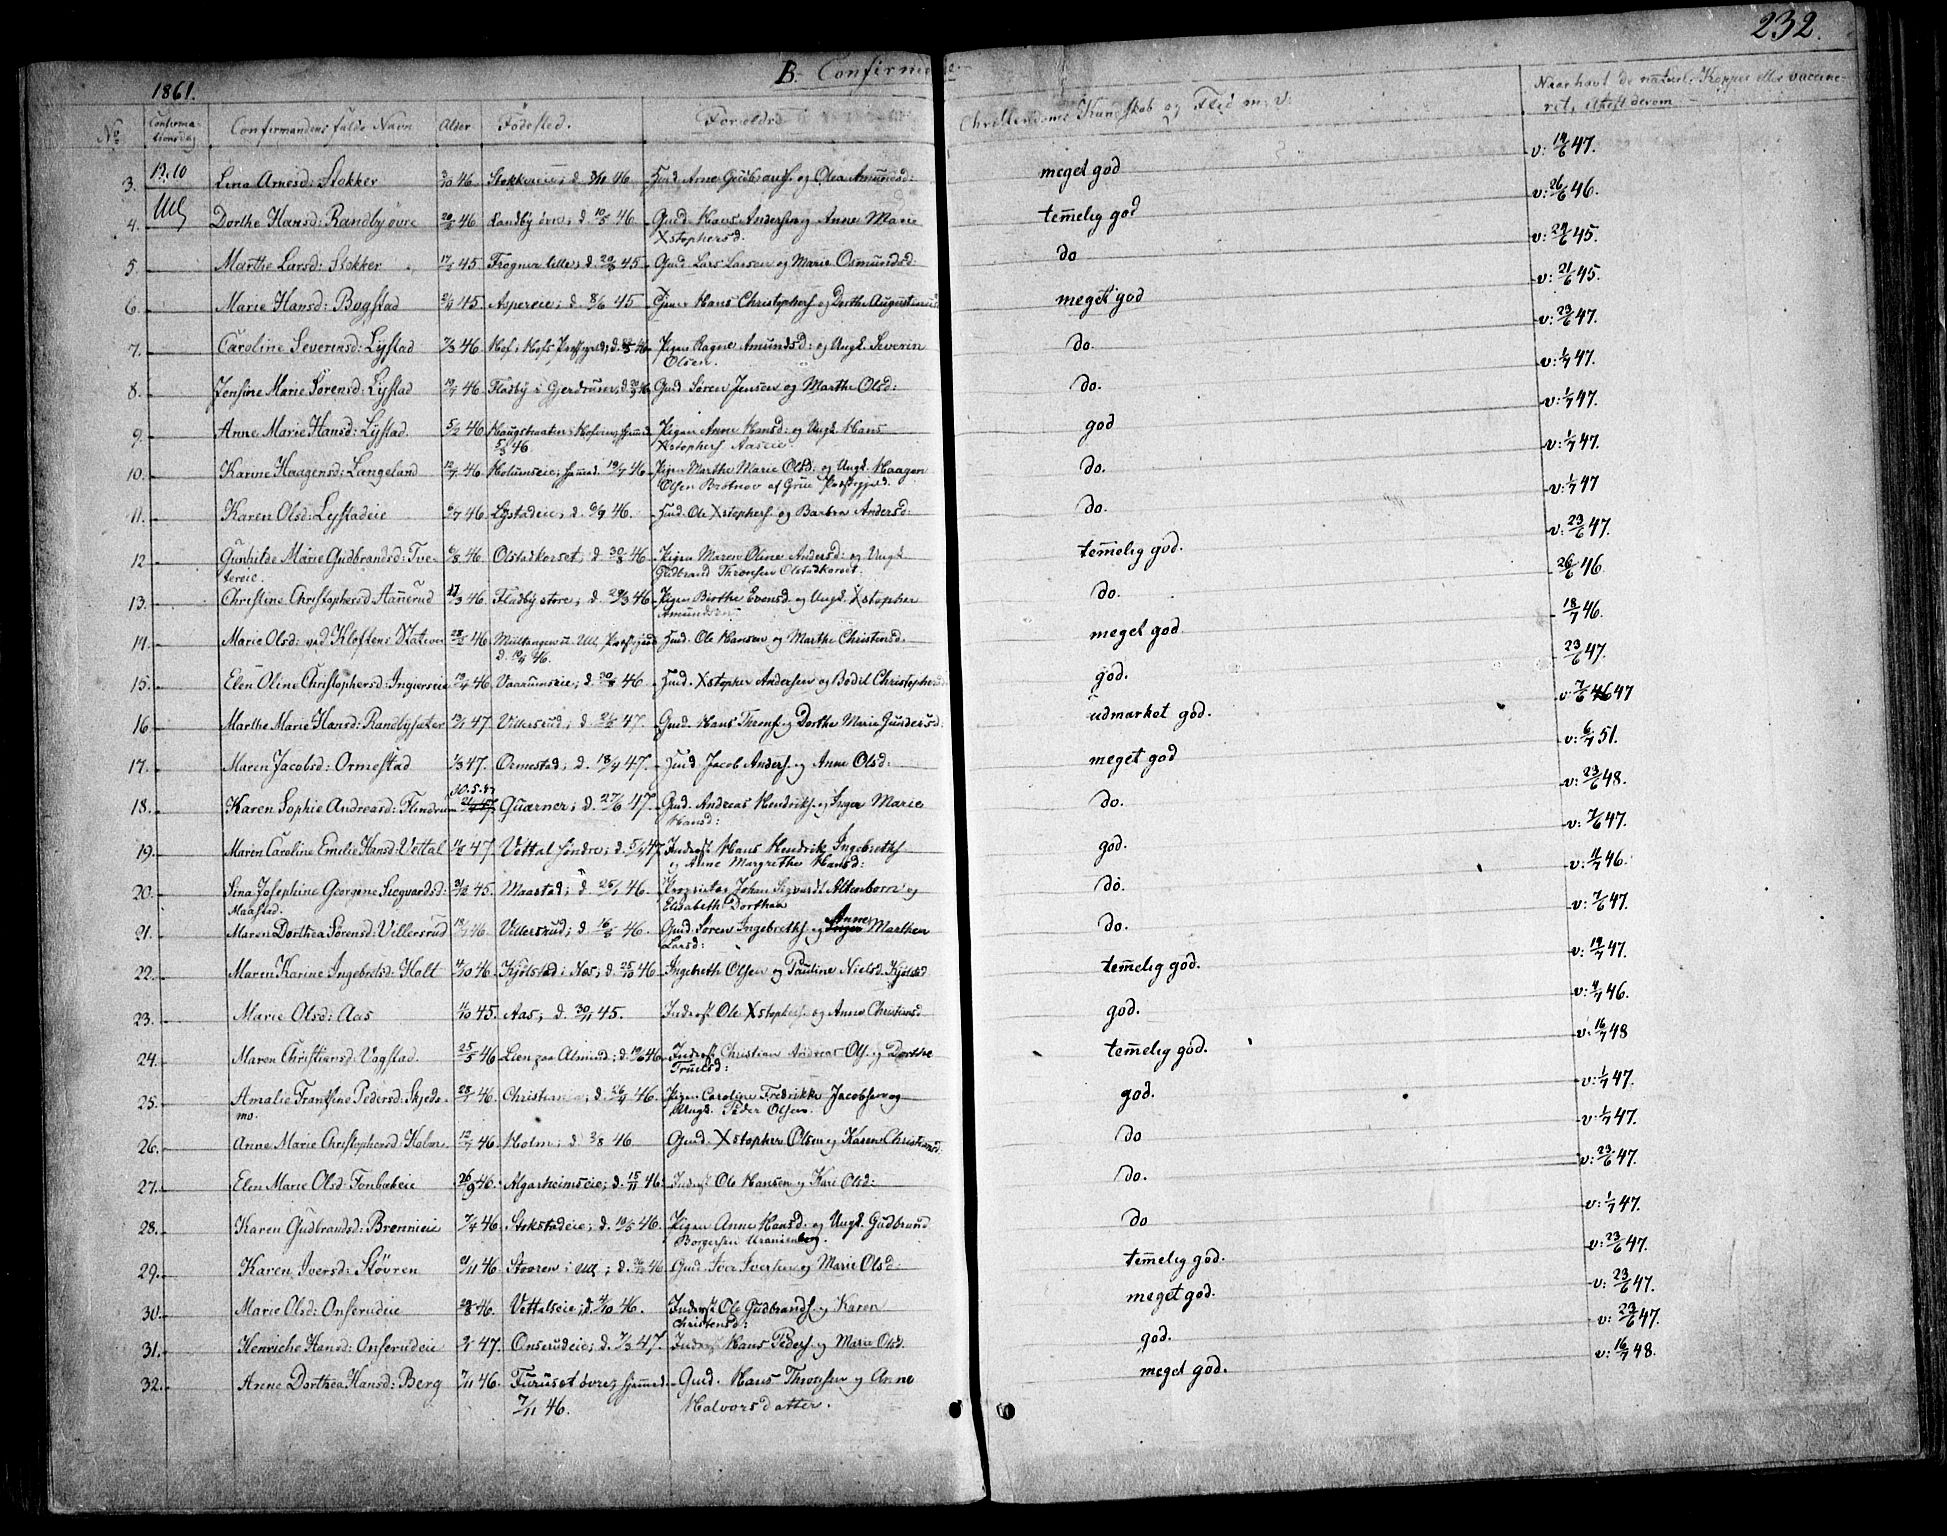 232.
1861.
B. Confirmerede.
No
Confirmationsdag
Confirmandens fulde Navn
Alder
Fødested.
Forældre
Christendoms Kundskab og Flid m. v:
Naar havt de naturl: Kopper eller vaccineret, Attest derom
13/10
Ull
3. Lina Arnesd: Stokker 46 Stokkereie; d. 46 Hud. Arne Gudbrands. og Olea Amundsd: meget god v: 19/6 47.
4. Dorthe Hansd: Randby øvre 46 Randby øvre; d. 10/5 46 Gud. Hans Anders. og Anne Marie temelig god v: 26/6 46.
Xstophersd.
5. Marthe Larsd: Stokker 17/5 45 Frogner lille; d. 45 Gud. Lars Larsen og Marie Osmundsd. do v: 24/6 45.
6. Marie Hansd: Bogstad 45 Aspereie; d. 8/6 45 Hans Christophers. og Dorthe Augustinusd meget god v: 21/6 45.
7. Caroline Severinsd: Lystad 7/3 46 Hof i Hofs Præstegjeld; d. 46 Pigen Ragne Amundsd: og Ungk. Severin do. v: 23/6 47.
Olsen.
8. Jensine Marie Sørensd: Lystad 46 Fladby i Gjerdrum; d. 46 Gud. Søren Jensen og Marthe Olsd: do. v: 1/7 47.
9. Anne Marie Hansd: Lystad. 5/2 46 Haugstraaten, d. Pigen Anne Hansd: og Ungk. Hans god v: 1/7 47.
5/3 46. Xstophers. Aaseie
10. Karine Haagensd: Langeland 12/7 46 Holumseie; hjemmed. 19/7 46 Pigen Marthe Marie Olsd: og Ungk. Haagen do. v: 1/7 47.
Olsen Brotnov af Grue Præstegjeld.
11. Karen Olsd: Lystadeie 46 Lystadeie; d. 46. Hud. Ole Xstophers. og Barbra Andersd: do. v: 1/7 47
12. Gunhilde Marie Gudbrandsd: Tve- 6/8 46 Olstadkorset; d. 30/8 46 Pigen Maren Oline Andersd: og Ungk. temmelig god. v: 23/6 47.
tereie. Gudbrand Thronsen Olstadkorset:
13. Christine Christophersd Aamerud 17/3 46 Fladby store; d. 29/3 46 Pigen Birthe Evensd. og Ungk. Xstopher do. 26/6 46
Amundsen
14. Marie Olsd: ved Kløftens Station 46 i Ull. Præstegjeld Hud. Ole Hansen og Marthe Christensd. meget god 18/7 46.
d. 46.
15. Elen Oline Christophersd: Ingierseie 46 Vaarumseie; d. 46 Hud. Xstopher Andersen og Bodil Christophersd god. 23/6 47.
16. Marthe Marie Hansd: Randbysæter 47. Villersrud; d. 47. Gud. Hans Throns. og Dorthe Marie Gundersd: udmærket god. v: 7/6 46 47
17. Maren Jacobsd: Ormestad 1/3 47. Ormestad; d. 18/4 47. Hud. Jacob Anders. og Anne Olsd: meget god v: 6/7 51.
18. Karen Sophie Andreasd: Flindrum 10.5.47 Quærner; d. 27/6 47. Gud. Andreas Hendriks. og Inger Marie do. v: 23/6 48.
Hansd:
19. Maren Caroline Emelie Hansd: Vettal 47 Vettal søndre; d. 47. Inderst Hans Hendrik Ingebreths. god. v: 7/6 47.
og Anne Margrethe Hansd:
20. Sina Josephine Georgine Seegvardsd: 45. Maastad; d. 26/1 46. Proprietær Johan Segvardt Altenborn og do. v: 11/7 46.
Maastad. Elisabeth Dorthea
21. Maren Dorthea Sørensd: Villersrud 46 Villersrud; d. 46. Gud. Søren Ingebreths. og Anne Marthea do. v: 7/6 47.
Larsd:
22. Maren Karine Ingebretsd: Holt 46. Kjølstad i Næs; d. 25/10 46 Ingebreth Olsen og Pauline Nielsd. Kjølstad temmelig god. v: 19/7 47.
23. Marie Olsd: Aas 45. Aas; d. 30/11 45. Inderst Ole Xstophers. og Anne Christiansd god. v: 4/7 46.
24. Maren Christiansd: Vogstad. 25/5 46 Lien paa Alminding; d. 46 Inderst Christian Andreas Ols. og Dorthe temmelig god. v: 16/7 48
Truelsd:
25. Amalie Frantsine Pedersd: Skjeds- 46. Christiania; d. 26/4 46. Pigen Caroline Fredrikke Jacobsen og god. v: 1/7 47.
mo. Ungk. Peder Olsen.
26. Anne Marie Christophersd. Holm 12/7 46. Holm; d. 46 Gud. Xstopher Olsen og Karen Christiansd: do v: 1/7 47.
27. Elen Marie Olsd: Fonbækeie 26/9 46. Algarheimseie; d. 15/11 46. Inderst Ole Hansen og Kari Olsd: do. v: 23/6 47.
28. Karen Gudbrandsd: Brennieie 7/4 46 Stokstadeie; d. 46. Pigen Anne Hansd. og Ungk. Gudbrand do v: 1/7 47.
Borgersen Uranienborg.
29. Karen Iversd: Støvren 46 Støvren i Ull; d. 46 Gud. Iver Iversen og Marie Olsd: temmelig god. v: 23/6 47.
30. Marie Olsd: Onserudeie 46. Vettalseie; d. 46. Inderst Ole Gudbrands. og Karen meget god. v: 23/6 47.
Christensd:
31. Henriche Hansd: Onserudeie 47. Onserudeie; d. 7/3 47. Inderst Hans Peders. og Marie Olsd. god. v: 23/6 47.
32. Anne Dorthea Hansd: Berg 7/11 46. Furuset øvre, hjemmed. Gud. Hans Thronsen og Anne meget god. v: 16/7 48.
7/11 46. Halvorsdatter.